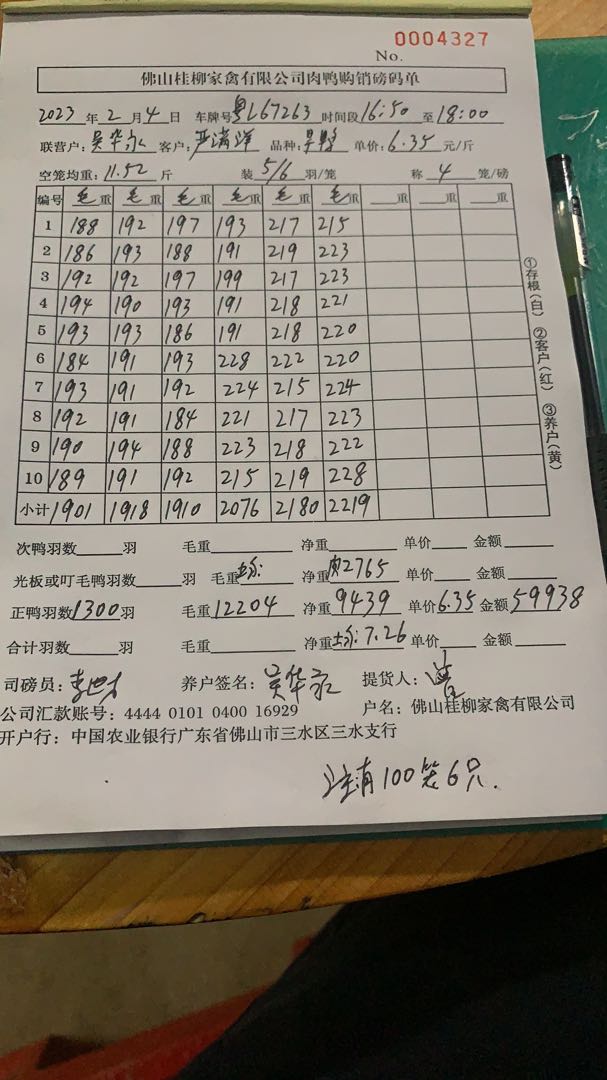 0004327
No.
佛山桂柳家禽有限公司肉鸭购销磅码单
2023年2月4日 车牌号粤L67263 时间段16:50至18:00
联营户:吴华永 客户:严满洋 品种: 单价:6.35元/斤
空笼均重:11.52斤 装5/6羽/笼 称4笼/磅
编号 毛重 毛重 毛重 毛重 毛重 毛重 重 重 重
1 188 192 197 193 217 215
2 186 193 188 191 219 223
3 192 192 197 199 217 223
4 194 190 193 191 218 221
5 193 193 186 191 218 220
6 184 191 193 228 222 220
7 193 191 192 224 215 224
8 192 191 184 221 217 223
9 190 194 188 223 218 222
10 189 191 192 215 219 228
小计 1901 1918 1910 2076 2180 2219
次鸭羽数 羽 毛重 净重 单价 金额
光板或叮毛鸭羽数 羽 毛重 净重 2765 单价 金额
正鸭羽数1300羽 毛重12204 净重9439 单价6.35 金额59938
合计羽数 羽 毛重 净重 7.26 单价 金额
司磅员: 养户签名:吴华永 提货人:
公司汇款账号:4444 0101 0400 16929 户名:佛山桂柳家禽有限公司
开户行:中国农业银行广东省佛山市三水区三水支行
注有100笼6只.
①存根(白) ②客户(红) ③养户(黄)